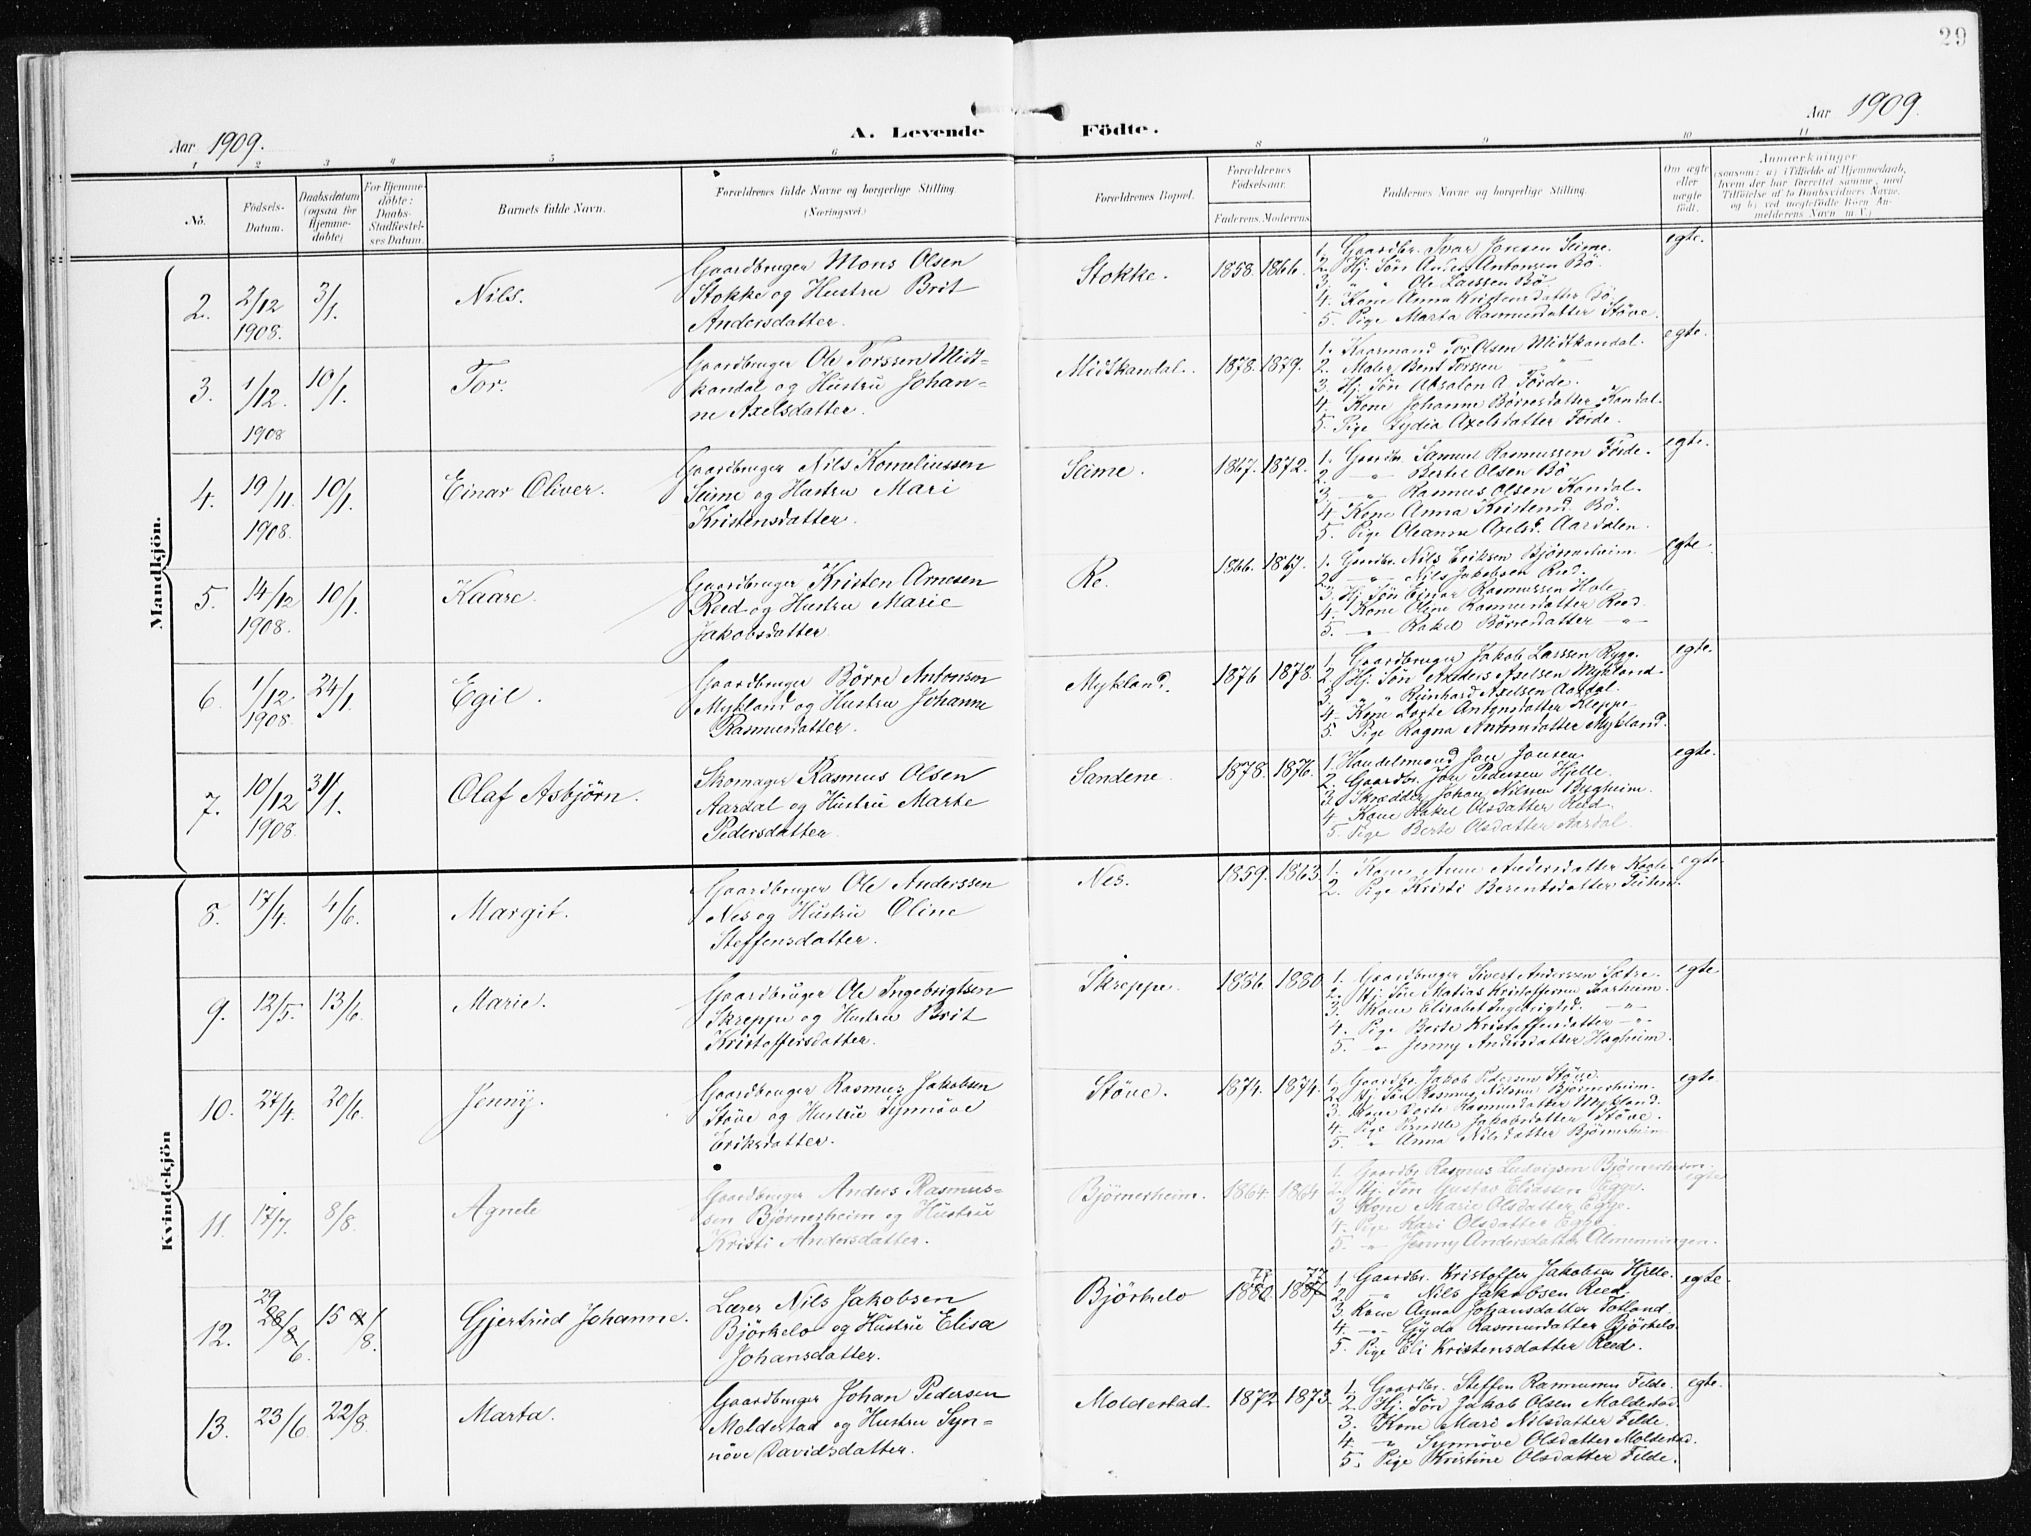 29
Aar 1909.
A. Levende
Födte.
Aar 1909.
1 2 3 4 5 6 8 9 10 11
No.
Födsels-Datum.
Daabsdatum (ogsaa for Hjemme-döbte)
For Hjemme-döbte: Daabs-Stadfæstel-ses Datum.
Barnets fulde Navn.
Forældrenes fulde Navne og borgerlige Stilling. (Næringsvei)
Forældrenes Bopæl.
Forældrenes Födselsaar.
Faderens. Moderens.
Faddernes Navne og borgerlige Stilling.
Om ægte eller uægte födt.
Anmærkninger (saasom: a) i Tilfælde af Hjemmedaab, hvem der har forrettet samme, med Tilföielse af to Daabsvidners Navne, og b) ved uægtefödte Börn An-melderens Navn m. V.)
Mandkjön.
2. 2/12 1908. 3/1. Nils.
Gaardbruger Mons Olsen
Stokke og Hustru Brit
Andersdatter.
Stokke. 1858. 1866. egte.
1. Gaardbr. Ivar Jonsen Seime.
2. Hj. Søn Anders Antonsen Bö.
3. " " Ole Larssen Bö.
4. Kone Anna Kristensdatter Bö.
5. Pige Marta Rasmusdatter Støve.
3. 1/12. 1908 10/1. Tor.
Gaardbruger Ole Torssen Midt-
kandal og Hustru Johan-
ne Axelsdatter.
Midtkandal. 1878. 1879. egte.
1. Kaarmand Tor Olsen Midtkandal.
2. Maler Bent Torssen "
3. Hj. Søn Absalon A. Förde.
4. Kone Johanne Børresdatter Kandal.
5. Pige Lydia Axelsdatter Förde.
4. 19/11. 1908. 10/1. Einar Oliver.
Gaardbruger Nils Korneliussen
Seime og Hustru Mari
Kristensdatter.
Seime. 1867. 1872. egte.
1. Gaardbr. Samuel Rasmussen Förde.
2. " Bertel Olsen Bö
3. " Rasmus Olsen Kandal.
4. Kone Anna Kristensd. Bö.
5. Pige Oleanna Axelsd. Aardalen.
5. 14/12 1908. 10/1. Kaare.
Gaardbruger Kristen Arnesen
Reed og Hustru Marie
Jakobsdatter.
Re. 1866. 1867. egte.
1. Gaardbr. Nils Eriksen Bjørnerheim.
2. " Nils Jakobsen Reed.
3. Hj. Søn Einar Rasmussen Hole
4. Kone Oline Rasmusdatter Reed.
5. " Rakel Børresdatter "
6. 1/12 1908. 24/1. Egil.
Gaardbruger Börre Antonsen
Mykland og Hustru Johanne
Rasmusdatter.
Mykland. 1876 1878. egte.
1. Gaardbruger Jakob Larssen Rygg.
2. Hj. Søn Anders Axelsen Mykland.
3. " " Reinhard Axelsen Aardal.
4. Kone Dorte Antonsdatter Kleppe.
5. Pige Ragna Antonsdatter Mykland.
7. 10/12 1908. 31/1. Olaf Asbjørn.
Skomager Rasmus Olsen
Aardal og Hustru Marte
Pedersdatter.
Sandene. 1878. 1876. egte.
1. Handelsmand Jon Jonsen
2. Gaardbr. Jon Pedersen Hjelle.
3. Skrædder Johan Nilsen Bergheim.
4. Kone Rakel Olsdatter Reed.
5. Pige Berte Olsdatter Aardal.
Kvindekjön
8. 17/4. 4/6. Margit.
Gaardbruger Ole Anderssen
Nes og Hustru Oline
Steffensdatter.
Nes. 1859. 1863. egte.
1. Kone Anne Andersdatter
2. Pige Kristi Berentsdatter
9. 12/5. 13/6. Marie.
Gaardbruger Ole Ingebrigtsen
Skreppe og Hustru Brit
Kristoffersdatter.
Skreppe. 1886. 1880. egte
1. Gaardbruger Sivert Anderssen Sætre.
2. Hj. Søn Matias Kristoffersen
3. Kone Elisabet Ingebrigtsd. "
4. Pige Berte Kristoffersdatter "
5. " Jenny Andersdatter Hagheim.
10. 27/4. 20/6. Jenny.
Gaardbruger Rasmus Jakobsen
Støve og Hustru Synnøve
Eriksdatter.
Støve. 1874. 1874. egte
1. Gaardbr. Jakob Pedersen Støve.
2. Hj. Søn Rasmus Nilssen Bjørnerheim.
3. Kone Dorte Rasmusdatter Mykland.
4. Pige Pernille Jakobsdatter Støve.
5. " Anna Nilsdatter Bjørnerheim
11. 17/7. 8/8. Agnete
Gaardbruger Anders Rasmus-
sen Bjørnerheim og Hustru
Kristi Andersdatter.
Bjørnerheim. 1864. 1864 egte
1. Gaardbr. Rasmus Ludvigsen Bjørnerheim.
2. Hj. Søn Gustav Eliassen Egge.
3. Kone Marie Olsdatter Egge.
4. Pige Kari Olsdatter Egge.
5. " Jenny Andersdatter Almenningen.
12. 29/6. 15/8. Gjertrud Johanne.
Lærer Nils Jakobsen
Bjørkelo og Hustru Elisa
Johansdatter.
Bjørkelo 1880 77 egte
1. Gaardbr. Kristoffer Jakobsen Hjelle.
2. " Nils Jakobsen Reed.
3. Kone Anna Johansdatter Totland.
4. " Gyda Rasmusdatter Bjørkelo
5. Pige Eli Kristensdatter Reed.
13. 23/6. 22/8. Marta.
Gaardbruger Johan Pedersen
Moldestad og Hustru Syn-
növe Davidsdatter.
Moldestad. 1872 1873. egte.
1. Gaardbr. Steffen Rasmussen Felde.
2. Hj. Søn Jakob Olsen Moldestad.
3. Kone Mari Nilsdatter Felde.
4. " Synnøve Olsdatter Moldestad.
5. Pige Kristine Olsdatter Felde.